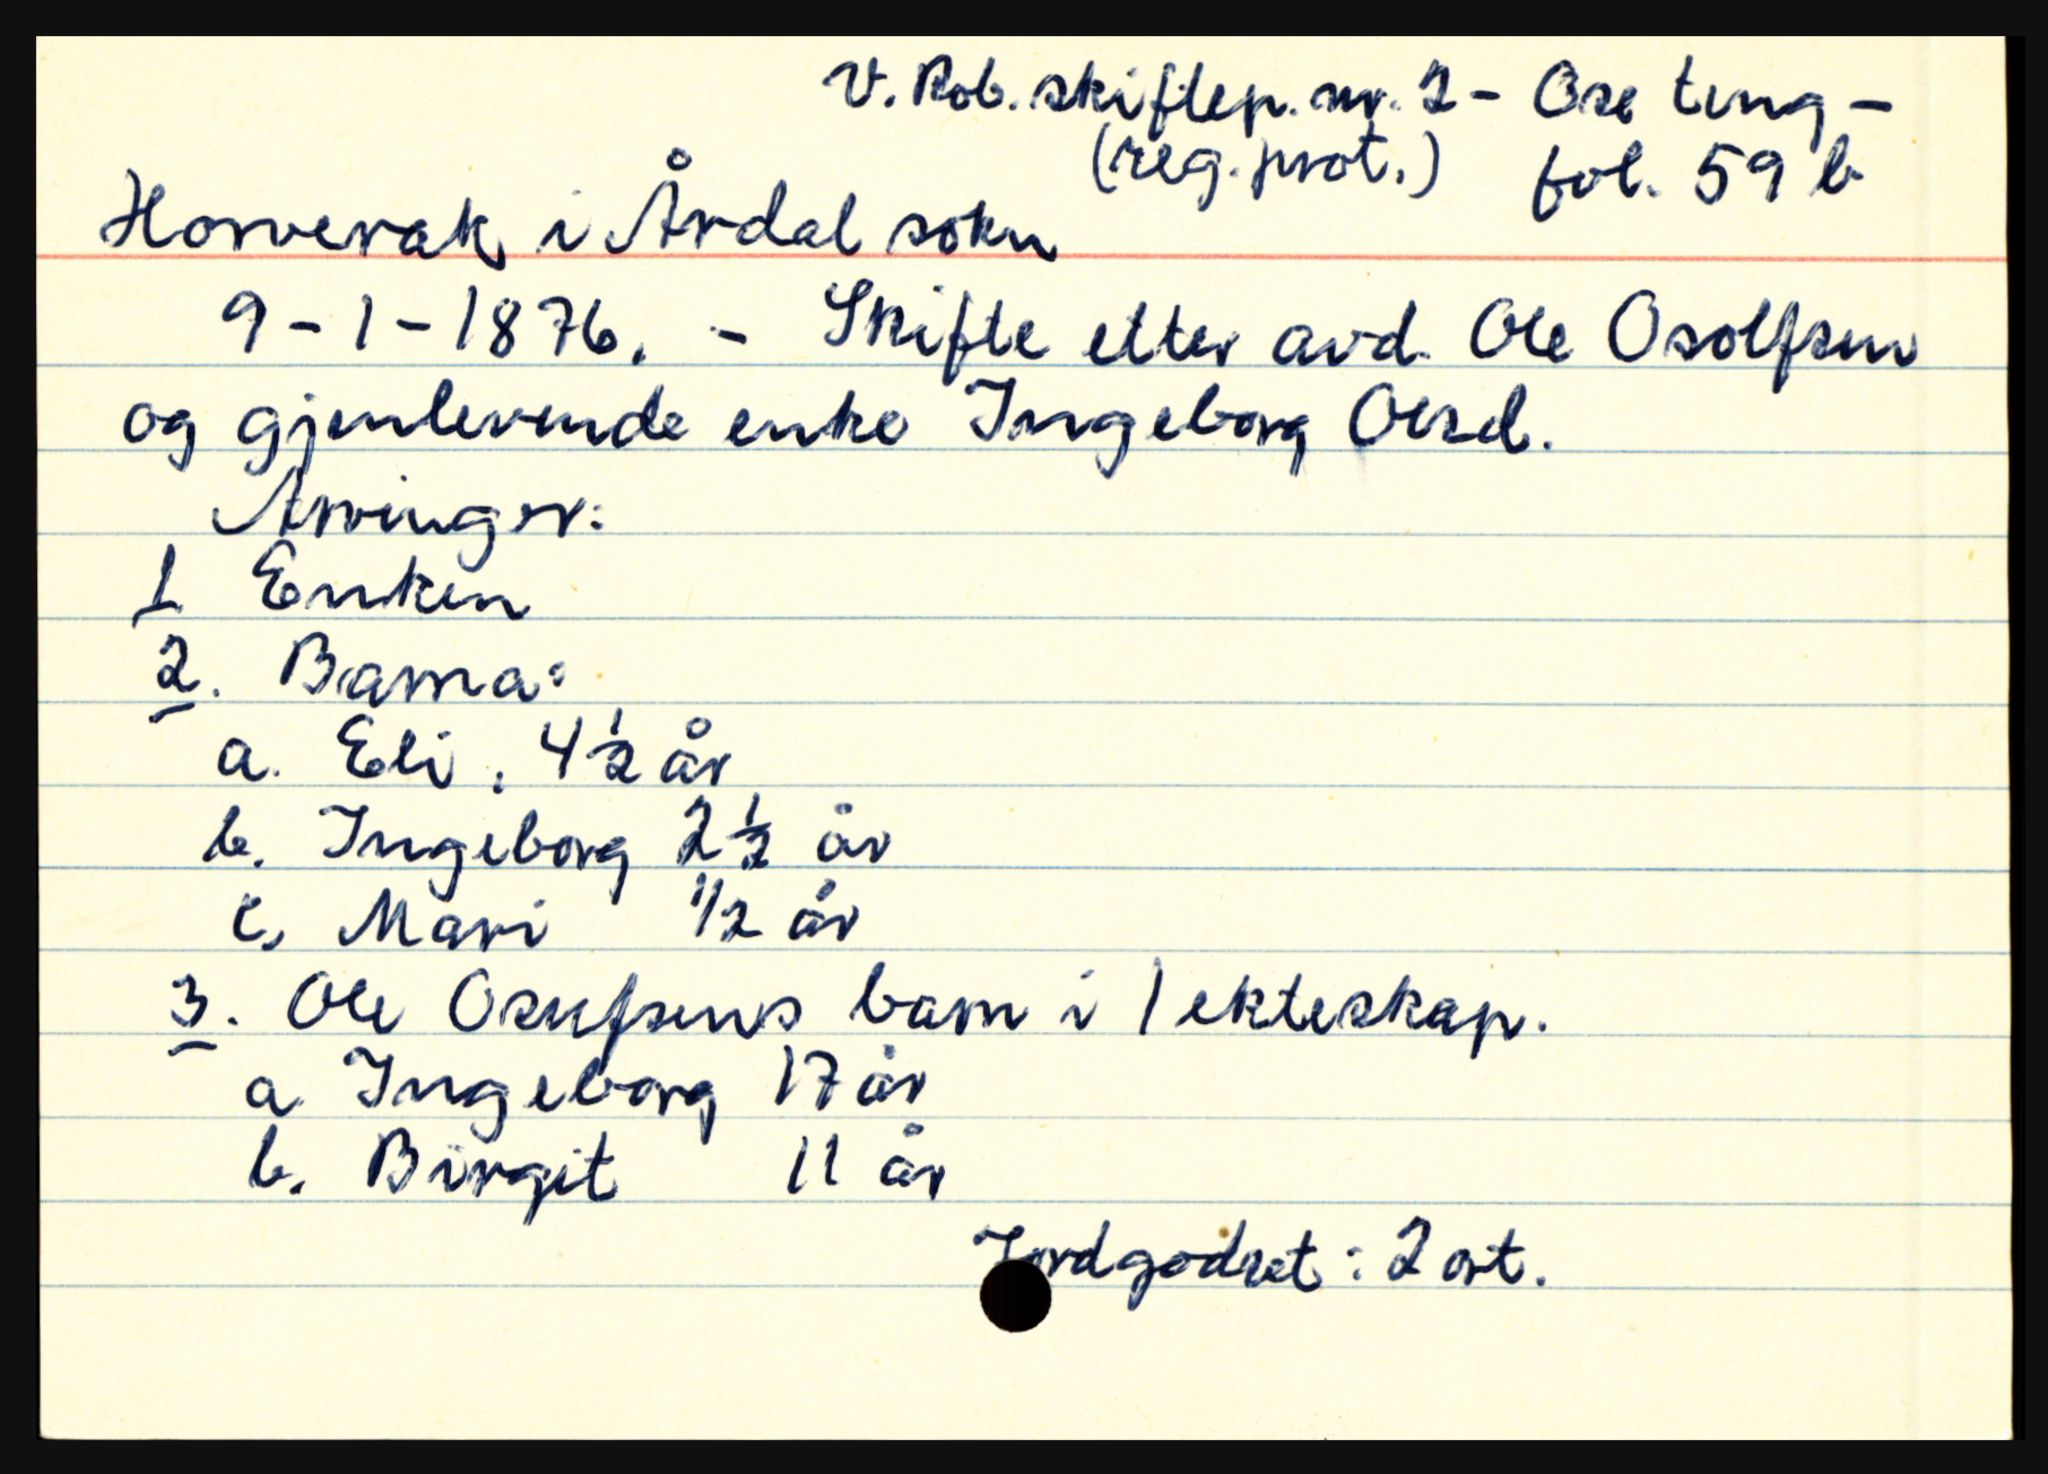 V. Rob. skiftep. nr. 2 - Ose ting -
(reg. prot.) fol. 59 b
Horverak i Årdal sokn
9-1-1876. - Skifte etter avd. Ole Osolfsen
og gjenlevende enke Ingeborg Olsd.
Arvinger:
1 Enken
2. Barna:
a. Eli, 4 1/2 år
b. Ingeborg 2 1/2 år
c. Mari 1/2 år
3. Ole Osufsens barn i 1 ekteskap.
a Ingeborg 17 år
b. Birgit 11 år
Jordgodset: 2 ort.